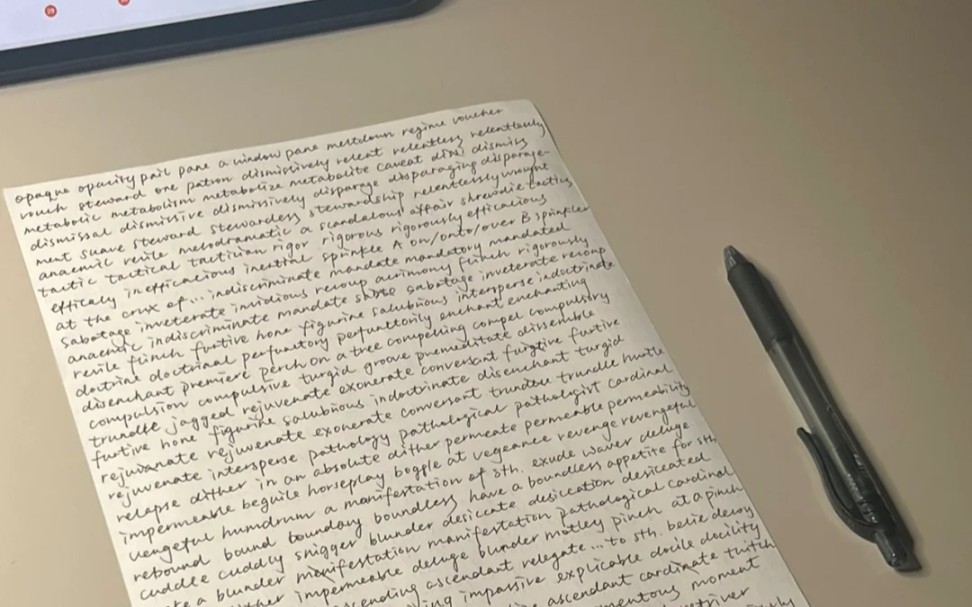 opaque opacity pail pane a window pane meltdown regime voucher
vouch steward one patron dismissively relent relentless relentlessly
metabolic metabolism metabolize metabolite caveat dismiss
dismissal dismissive dismissively disparage disparaging disparage-
ment suave steward stewardess stewardship relentlessly wrought
anaemic revile melodramatic a scandalous affair shrewdie tactics
tactic tactical tactician rigor rigorous rigorously efficacious
efficacy inefficacious inertial sprinkle A on/onto/over B sprinkler
at the crux of... indiscriminate mandate mandatory mandated
sabotage inveterate invidious recoup acrimony flinch rigorously
anaemic indiscriminate mandate sabotage inveterate recoup
revile flinch furtive hone figurine salubrious intersperse indoctrinate
doctrine doctrinal perfunctory perfunctorily enchant enchanting
disenchant premiere perch on a tree compelling compel compulsory
compulsion compulsive turgid groove premeditate dissemble
trundle jagged rejuvenate exonerate conversant furtive furtive
furtive hone figurine salubrious indoctrinate disenchant turgid
rejuvanate rejuvenate exonerate conversant trundle trundle hurtle
rejuvenate intersperse pathology pathological pathologist cardinal
relapse dither in an absolute dither permeate permeable permeability
impermeable beguile horseplay boggle at vegeance revenge revengeful
vengeful humdrum a manifestation of sth. exude waver deluge
rebound bound boundary boundless have a boundless appetite for sth
cuddle cuddly snigger blunder desiccate desiccation desiccated
a blunder manifestation manifestation pathological cardinal
impermeable deluge blunder motley pinch at a pinch
ascendant relegate... to sth. belie decoy
impassive explicable docile docility
ascendant cardinate twitch
moment